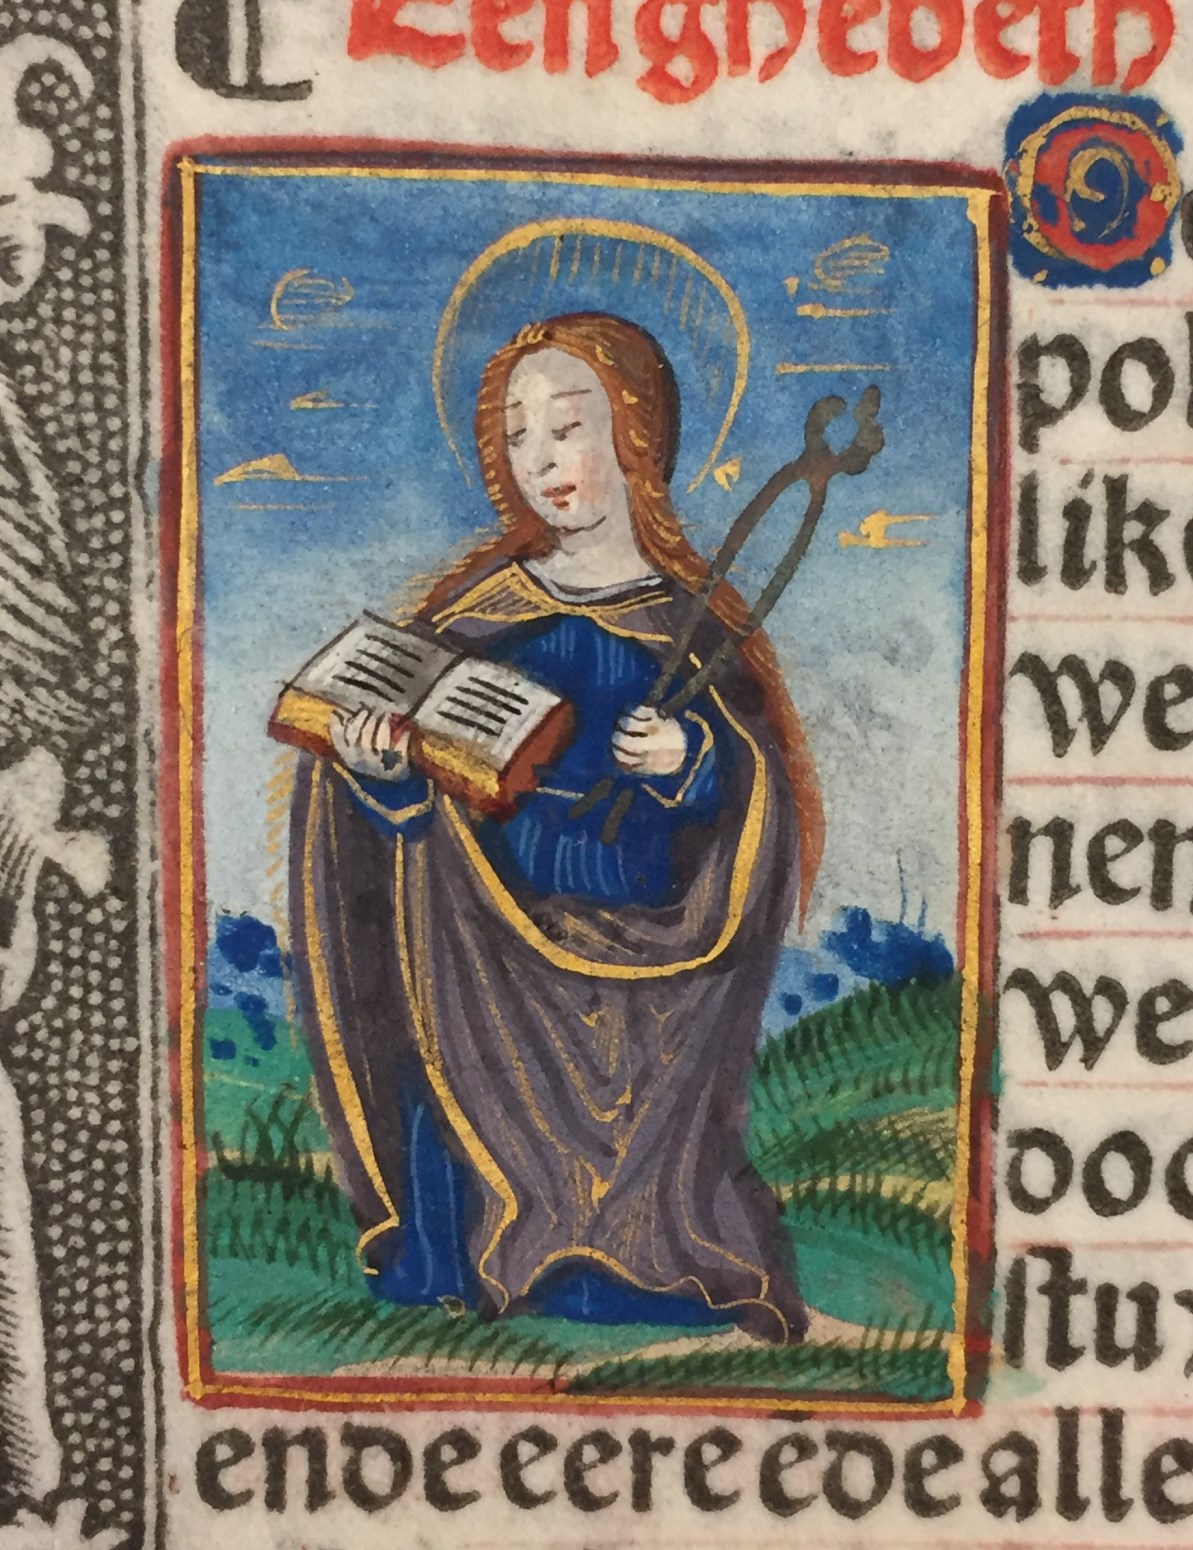 ¶ Een ghebeth
O
pol
like
we
nen
we
doo
stu
ende eere ede alle